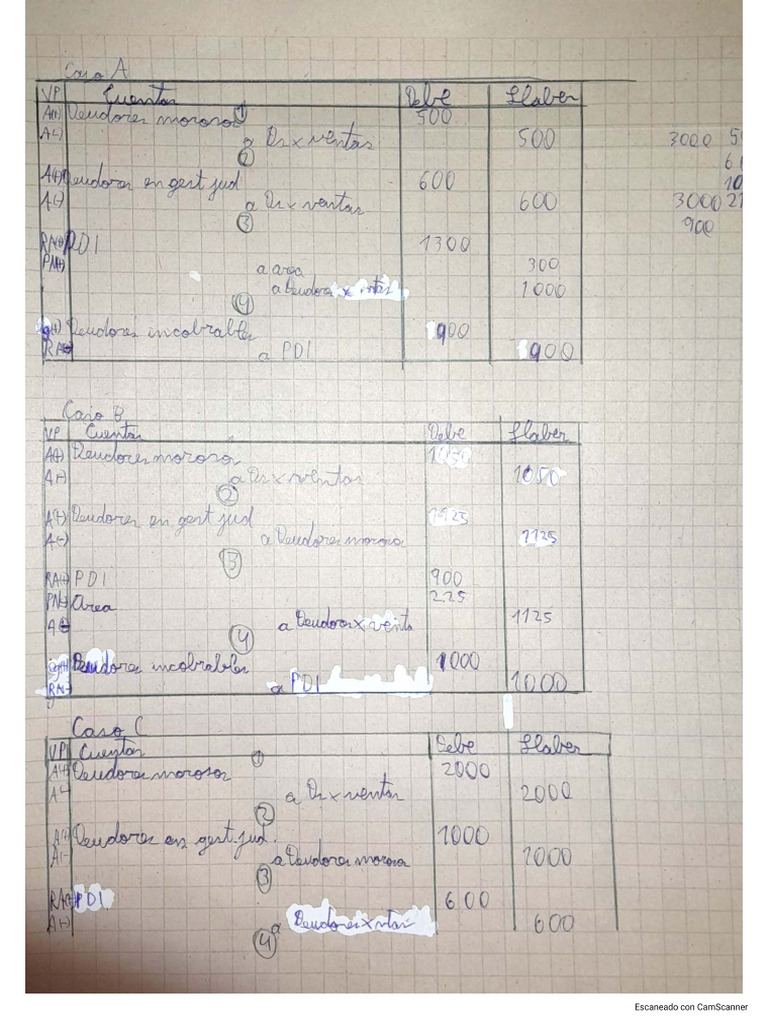 Caso A
VP Cuentas Debe Haber
A(+) Deudores morosos ① 500
A(-) a Ds x ventas 500 3000
②
A(+) Deudores en gest jud 600
A(-) a Ds x ventas 600 3000
③ 900
RA(+) PDI 1300
PN(+) a area 300
a Deudores x ventas 1000
④
(+) Deudores incobrables 900
RA(-) a PDI 900
Caso B
VP Cuentas Debe Haber
A(+) Deudores morosos 1050
A(-) a Ds x ventas 1050
②
A(+) Deudores en gest jud 1125
A(-) a Deudores morosos 1125
③
RA(+) PDI 900
PN(-) Area 225
A(-) a Deudores x venta 1125
④
(+) Deudores incobrables 1000
RA(-) a PDI 1000
Caso C
VP Cuentas Debe Haber
①
A(+) Deudores morosos 2000
A(-) a Ds x ventas 2000
②
A(+) Deudores en gest. jud. 1000
A(-) a Deudores morosos 1000
③
RA(+) PDI 600
A(-) a Deudores x vtas 600
④
Escaneado con CamScanner